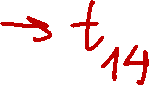 → t₁₄